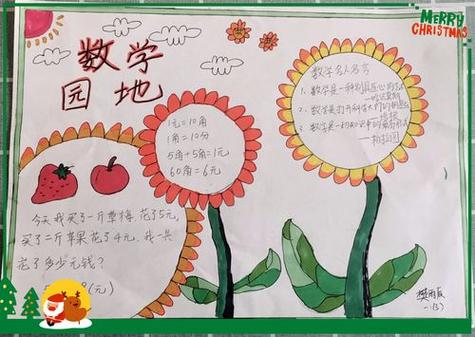 MERRY
CHRISTMAS
数学
园地
1元=10角
1角=10分
5角+5角=1元
60角=6元
数学名人名言
1、数学是一种别具匠心的艺术
2、数学是打开科学大门的钥匙
3、数学是一切知识中的最高形式
——柏拉图
今天我买了一斤草梅,花了5元,
买了二斤苹果花了4元,我一共
花了多少元钱?
(元)